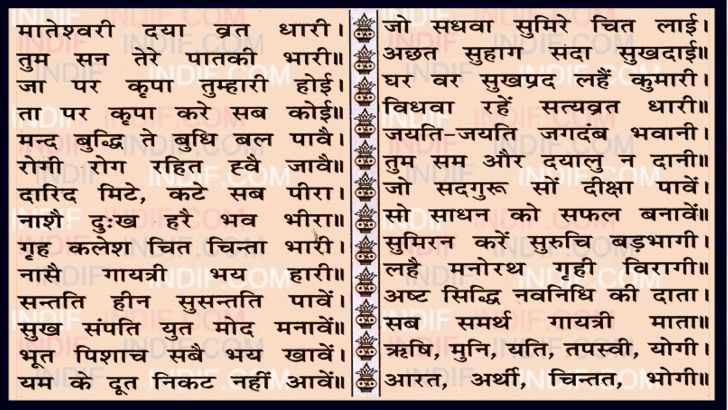 मातेश्वरी दया व्रत धारी।
तुम सन तेरे पातकी भारी॥
जा पर कृपा तुम्हारी होई।
ता पर कृपा करे सब कोई॥
मन्द बुद्धि ते बुधि बल पावै।
रोगी रोग रहित ह्वै जावै॥
दारिद मिटे, कटे सब पीरा।
नाशै दुःख हरै भव भीरा॥
गृह कलेश चित चिन्ता भारी।
नासै गायत्री भय हारी॥
सन्तति हीन सुसन्तति पावें।
सुख संपति युत मोद मनावें॥
भूत पिशाच सबै भय खावें।
यम के दूत निकट नहीं आवें॥
जो सधवा सुमिरे चित लाई।
अछत सुहाग सदा सुखदाई॥
घर वर सुखप्रद लहैं कुमारी।
विधवा रहें सत्यव्रत धारी॥
जयति-जयति जगदंब भवानी।
तुम सम और दयालु न दानी॥
जो सदगुरू सों दीक्षा पावें।
सो साधन को सफल बनावें॥
सुमिरन करें सुरुचि बड़भागी।
लहै मनोरथ गृही विरागी॥
अष्ट सिद्धि नवनिधि की दाता।
सब समर्थ गायत्री माता॥
ऋषि, मुनि, यति, तपस्वी, योगी।
आरत, अर्थी, चिन्तत, भोगी॥